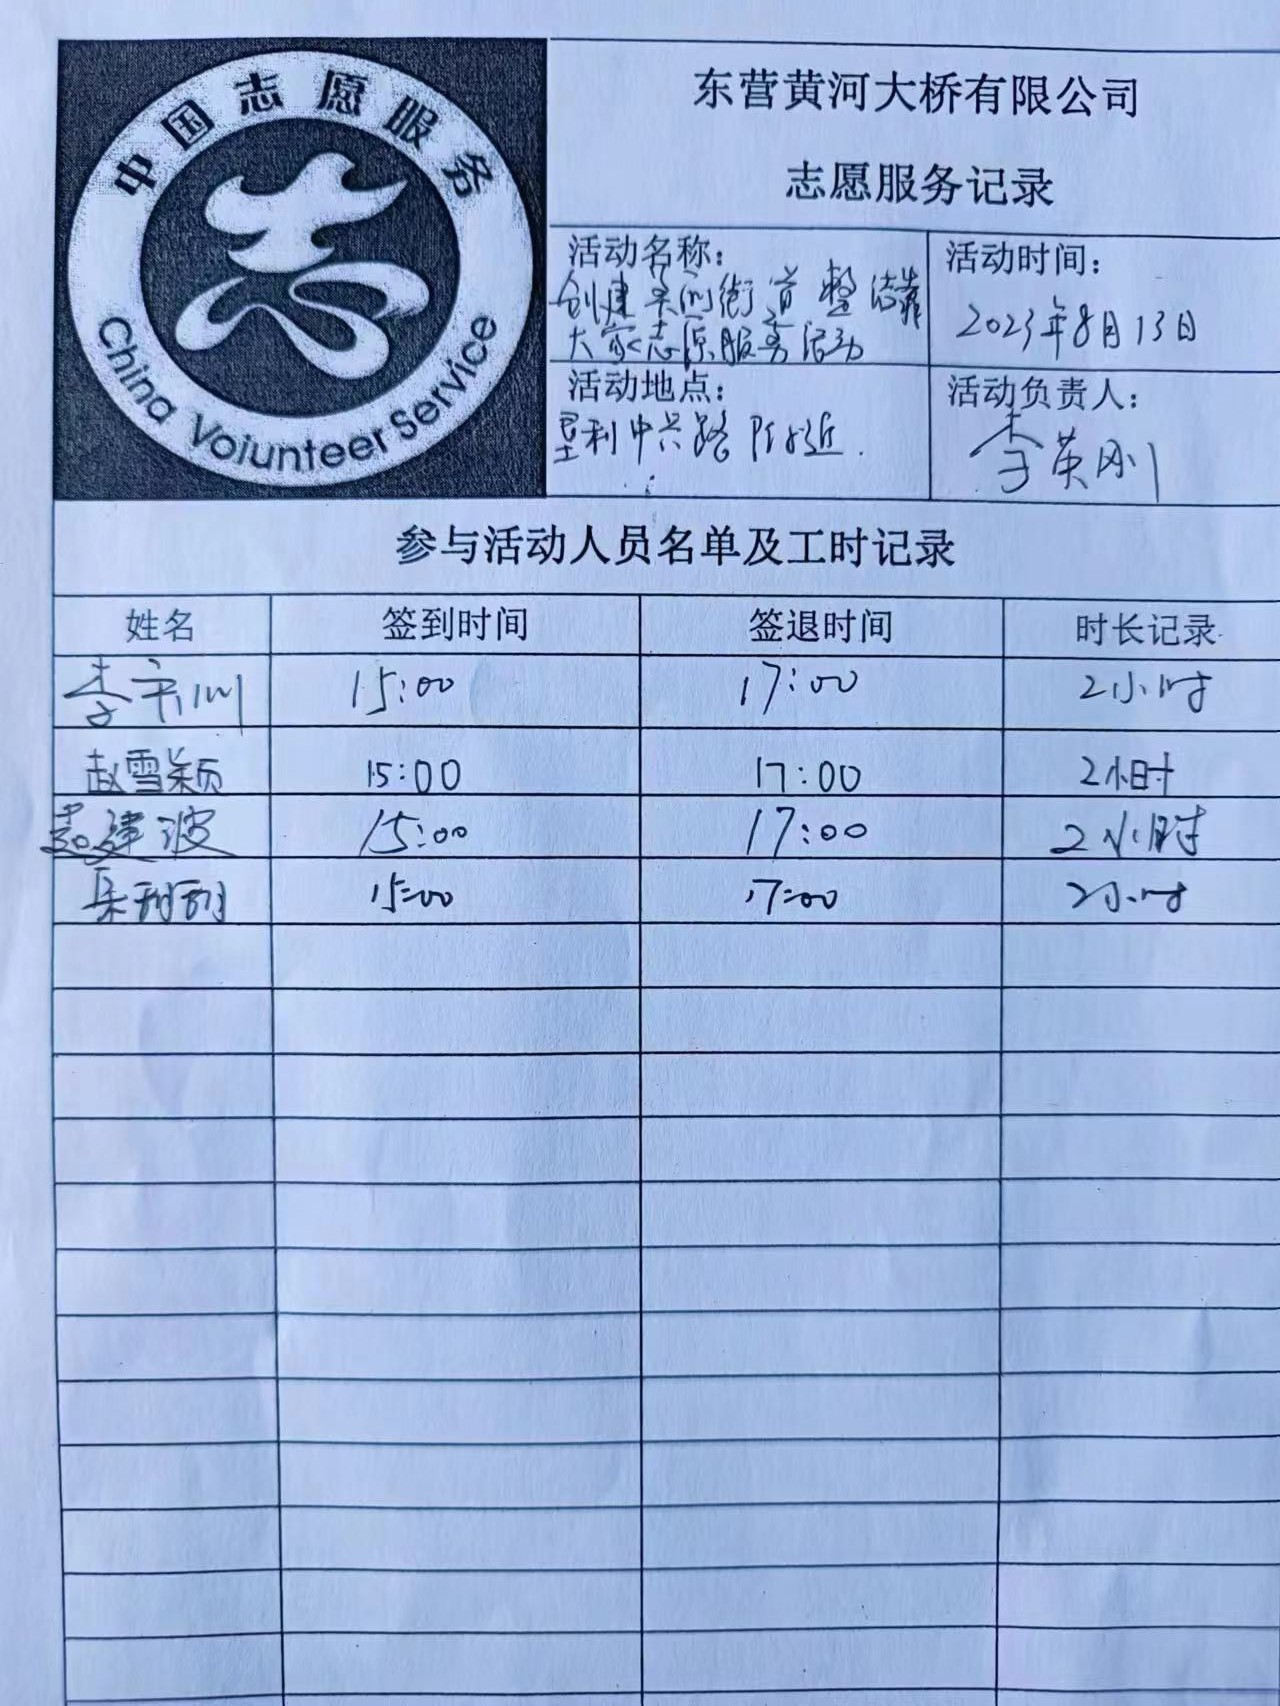 中国志愿服务
China Volunteer Service
东营黄河大桥有限公司
志愿服务记录
活动名称：
创建 街道 整洁靠
大家志愿服务活动
活动时间：
2023年8月13日
活动地点：
垦利中兴路附近.
活动负责人：
李英刚
参与活动人员名单及工时记录
姓名 签到时间 签退时间 时长记录
李 15:00 17:00 2小时
赵雪颖 15:00 17:00 2小时
建波 15:00 17:00 2小时
15:00 17:00 2小时